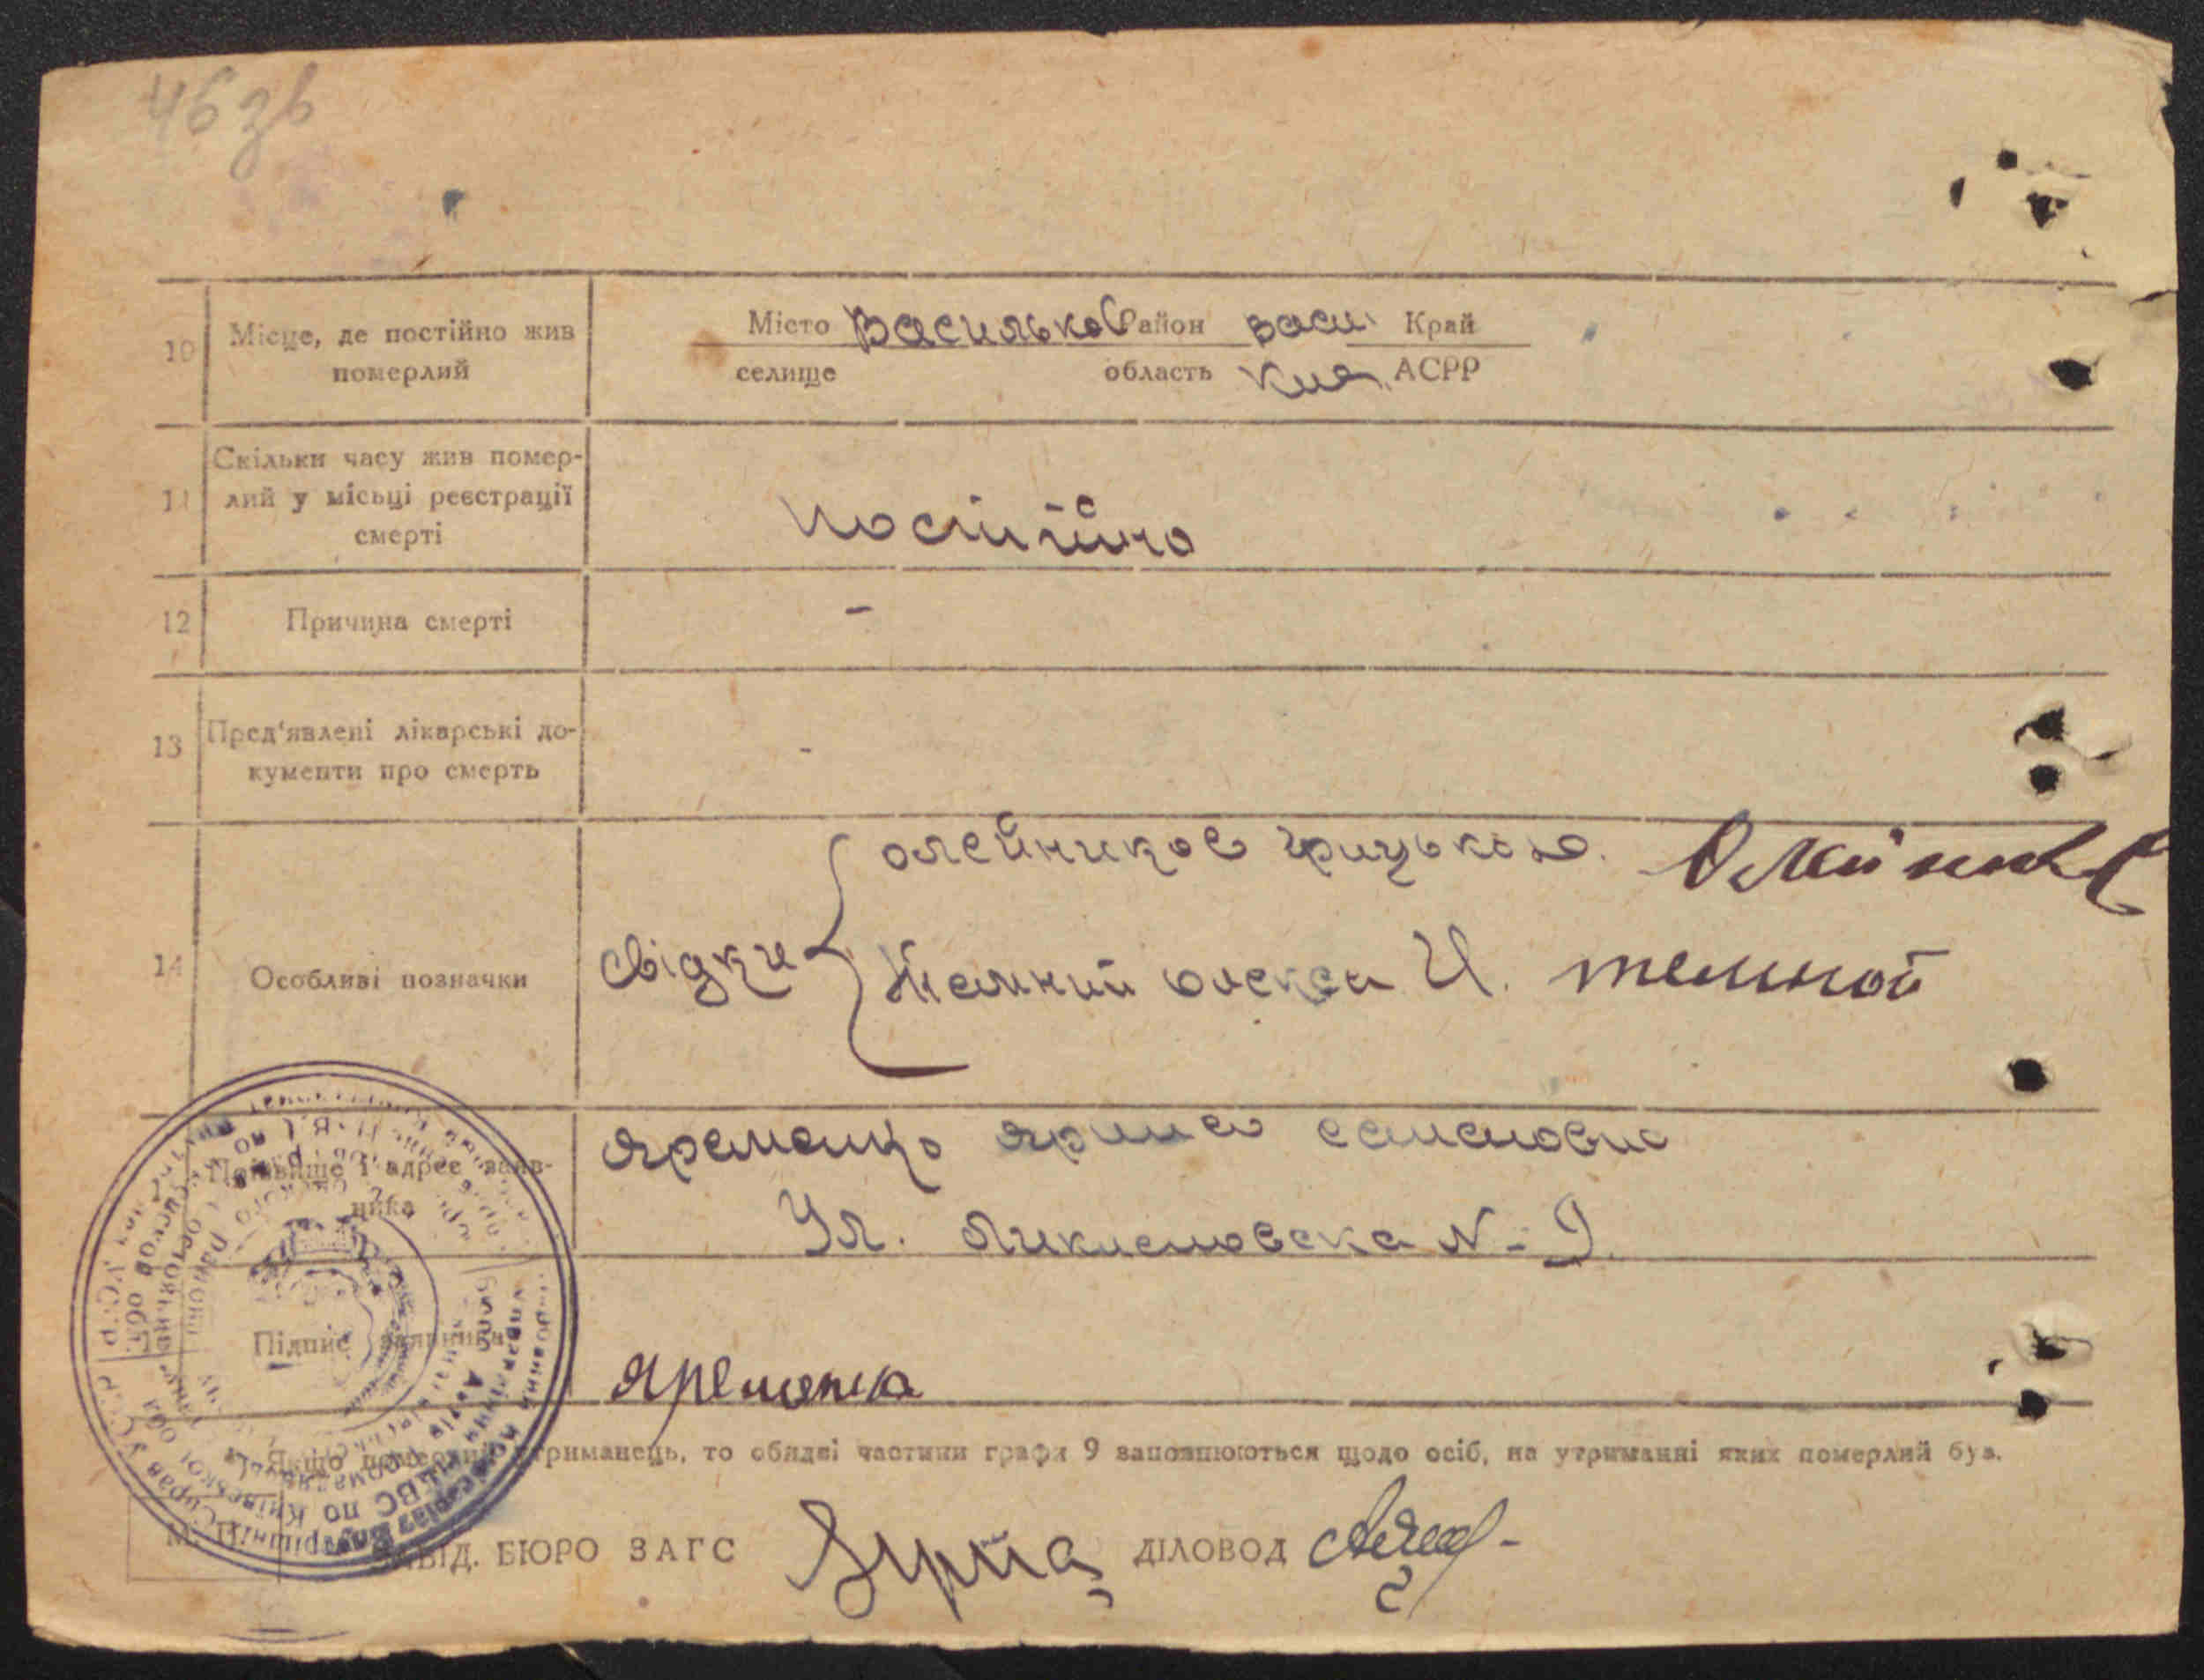 46зв
10 Місце, де постійно жив померлий
Місто Васильков Район Васи. Край
селище область Киев. АСРР
11 Скільки часу жив помер-
лий у місьці реєстрації
смерті
постійно
12 Причина смерті -
13 Пред'явлені лікарські до-
кументи про смерть -
14 Особливі позначки
свідки
Олейников Грицько Олейник
Темний Олекса И. темной
Прізвище і адрес заяв-
ника
Яременко Ярина Семеновна
Ул. N-9.
Підпис заявника Яременка
Якщо померлий утриманець, то обидві частини графи 9 заповнюються щодо осіб, на утриманні яких померлий був.
М. П.
ЗАВІД. БЮРО ЗАГС ДІЛОВОД